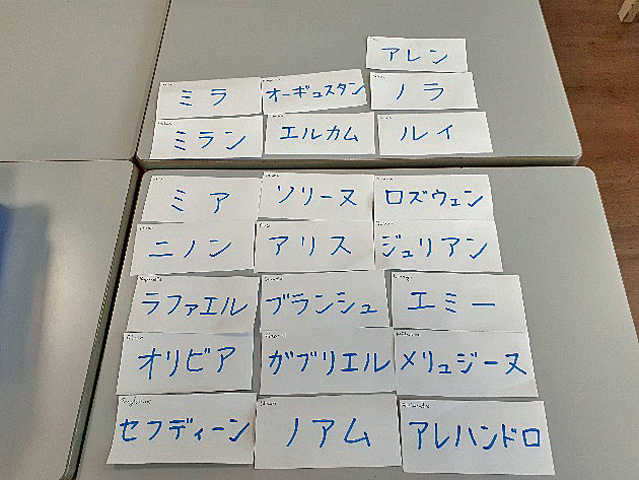 アレン
ミラ
オーギュスタン
ノラ
ミラン
エルカム
ルイ
ミア
ソリーヌ
ロズウェン
ニノン
アリス
ジュリアン
ラファエル
ブランシュ
エミー
オリビア
ガブリエル
メリュジーヌ
セフディーン
ノアム
アレハンドロ